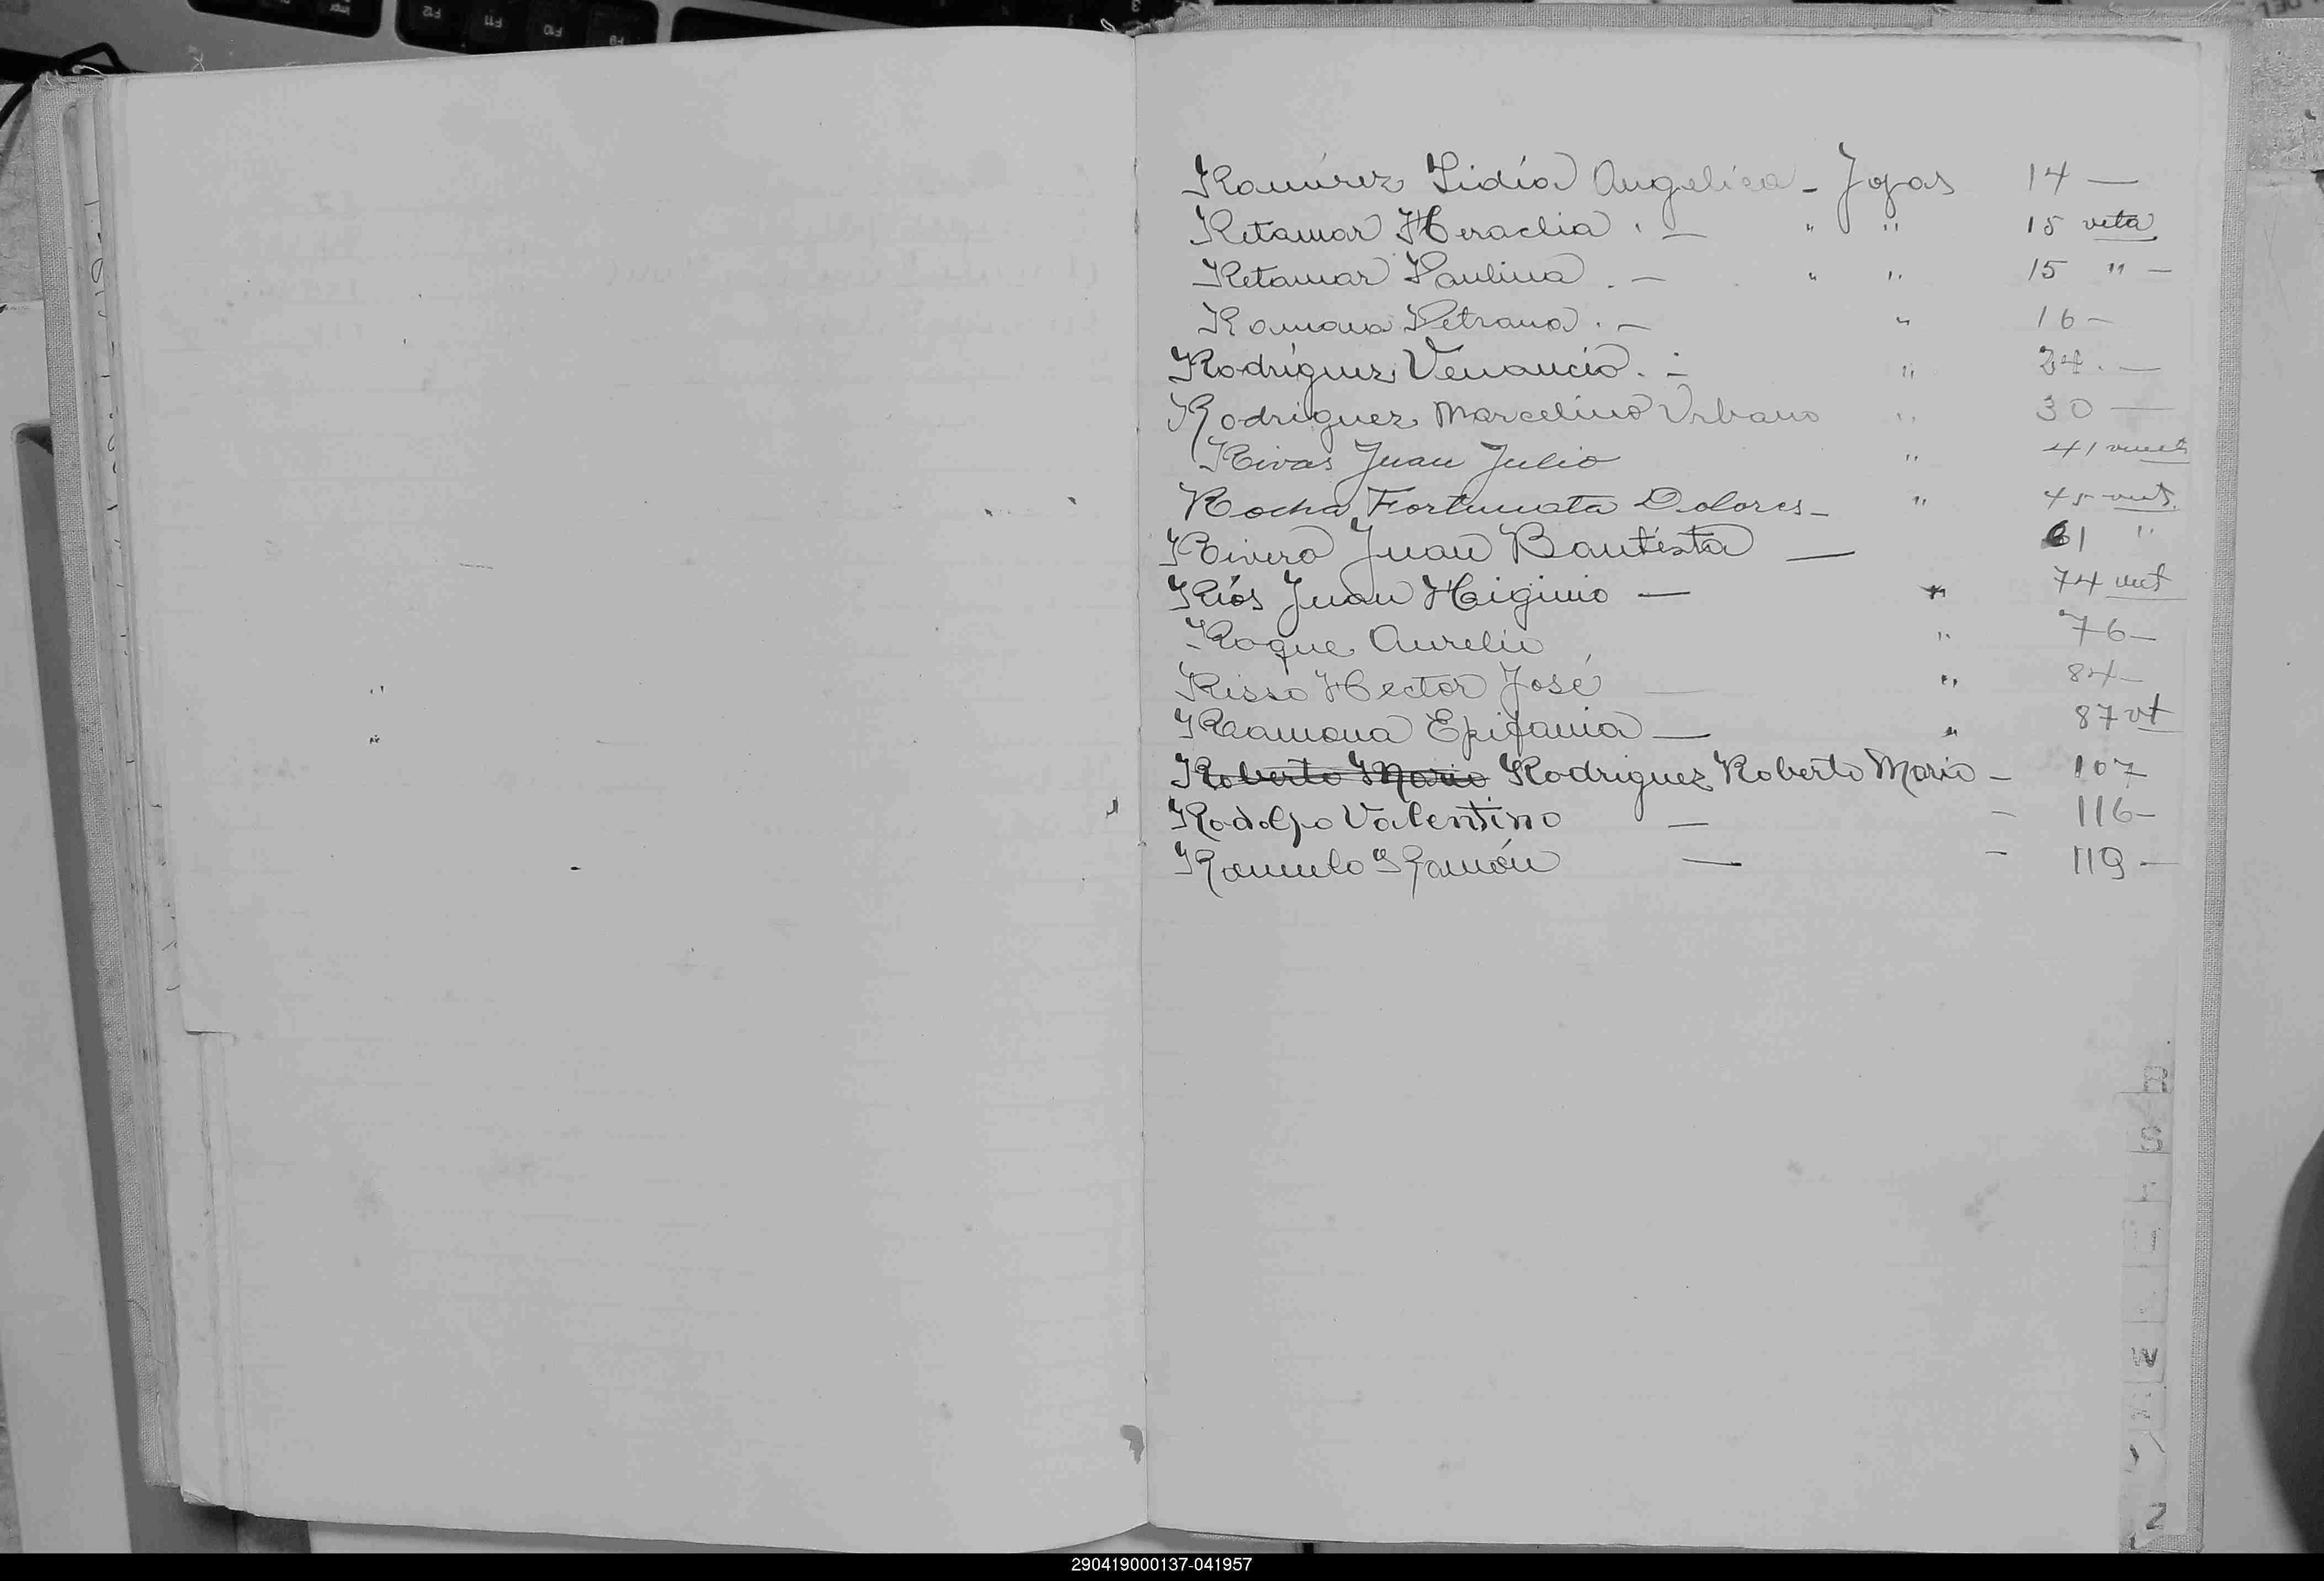 Ramírez Lidia Angelica - Fojas 14 —
Retamar Heraclia . — " " 15 vlta
Retamar Paulina . — " " 15 " —
Romana Petrana . — " 16 —
Rodríguez Venancio . — " 24 . —
Rodriguez Marcelino Urbano " 30 —
Rivas Juan Julio " 41 vuelt
Rocha Fortunata Dolores - " 45 vuelt.
Rivero Juan Bautista — 61 "
Ríos Juan Higinio — " 74 vuelt
Roque Aurelio " 76 —
Risso Hector José — " 84 —
Ramona Epifania — " 87 vt
Roberto Mario Rodriguez Roberto Mario - 107
Rodolfo Valentino — - 116 -
Romulo Ramón — - 119 —
S
W
Z
290419000137-041957